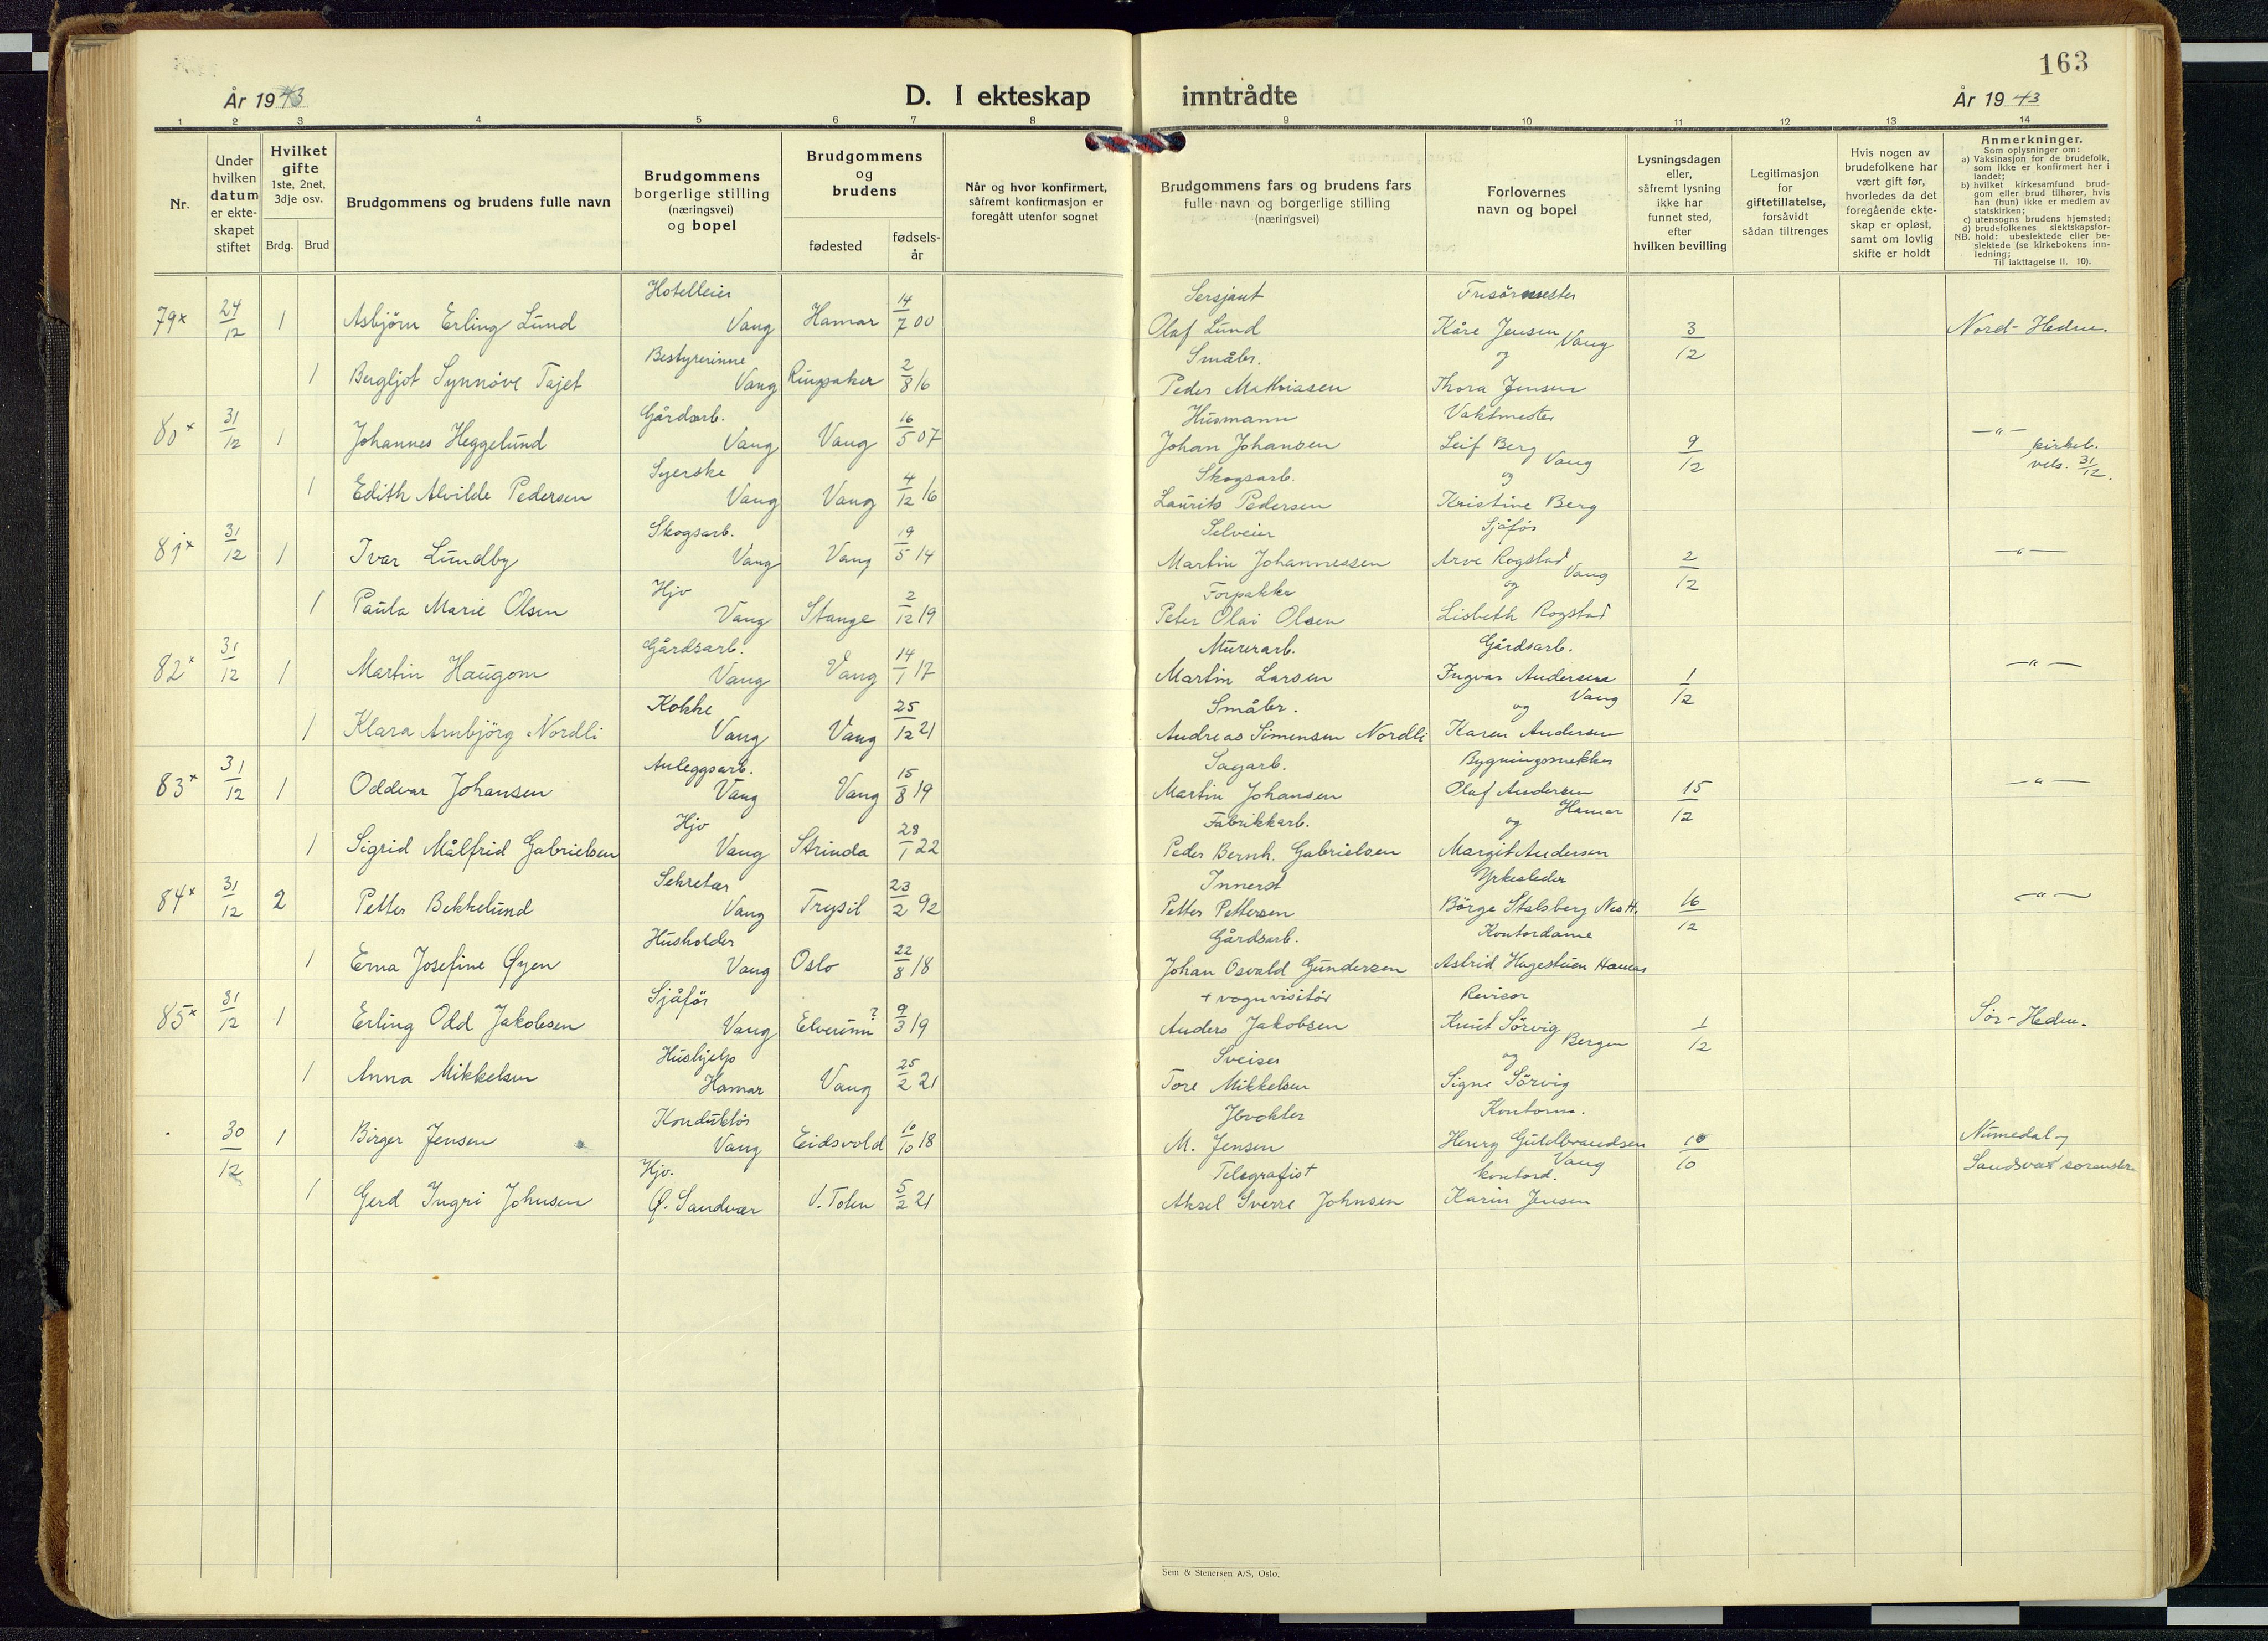 163
År 1943 D. I ekteskap inntrådte År 19 43
1 2 3 4 5 6 7 8 9 10 11 12 13 14
Nr.
Under hvilken datum er ekteskapet stiftet
Hvilket gifte 1ste, 2net, 3dje osv.
Brdg. Brud
Brudgommens og brudens fulle navn
Brudgommens borgerlige stilling (næringsvei) og bopel
Brudgommens og brudens
fødested fødselsår
Når og hvor konfirmert, såfremt konfirmasjon er foregått utenfor sognet
Brudgommens fars og brudens fars fulle navn og borgerlige stilling (næringsvei)
Forlovernes navn og bopel
Lysningsdagen eller, såfremt lysning ikke har funnet sted, efter hvilken bevilling
Legitimasjon for giftetillatelse, forsåvidt sådan tiltrenges
Hvis nogen av brudefolkene har vært gift før, hvorledes da det foregående ekteskap er opløst, samt om lovlig skifte er holdt
Anmerkninger.
Som oplysninger om:
a) Vaksinasjon for de brudefolk, som ikke er konfirmert her i landet;
b) hvilket kirkesamfund brudgom eller brud tilhører, hvis han (hun) ikke er medlem av statskirken;
c) utensogns brudens hjemsted;
d) brudefolkenes slektskapsforhold: ubeslektede eller beslektede (se kirkebokens innledning;
NB. Til iakttagelse II. 10).
Hotelleier Sersjant Frisørmester
79x 24/12 1 Asbjörn Erling Lund Vang Hamar 14/7 00 Olaf Lund Kåre Jensen Vang 3/12 Nord-Hedm.
Bestyrerinne Småbr. og
1 Bergljot Synnöve Tajet Vang Ringsaker 2/8 16 Peder Mathiasen Thora Jensen
Gårdarb. Husmann Vaktmester
80x 31/12 1 Johannes Heggelund Vang Vang 16/5 07 Johan Johansen Leif Berg Vang 9/12 -"- kirkel. vels. 31/12.
Syerske Skogsarb. og
1 Edith Alvilde Pedersen Vang Vang 4/12 16 Laurits Pedersen Kristine Berg
Skogsarb. Selveier Sjåför
81x 31/12 1 Ivar Lundby Vang Vang 19/5 14 Martin Johannessen Arve Rogstad Vang 2/12 -"-
Hjv Forpakter og
1 Paula Marie Olsen Vang Stange 2/12 19 Peter Olai Olsen Lisbeth Rogstad
Gårdsarb. Murerarb. Gårdsarb.
82x 31/12 1 Martin Haugom Vang Vang 14/1 17 Martin Larsen Ingvar Andersen Vang 1/12 -"-
Kokke Småbr. og
1 Klara Arnbjörg Nordli Vang Vang 25/12 21 Andreas Simensen Nordli Karen Andersen
Anleggsarb. Sagarb. Bygningssnekker
83x 31/12 1 Oddvar Johansen Vang Vang 15/8 19 Martin Johansen Olaf Andersen Hamar 15/12 -"-
Hjv Fabrikkarb. og
1 Sigrid Målfrid Gabrielsen Vang Strinda 28/1 22 Peder Bernh. Gabrielsen Margit Andersen
Sekretær Innerst Yrkesleder
84x 31/12 2 Petter Bekkelund Vang Trysil 23/2 92 Petter Pettersen Börge Stalsberg Nes H. 16/12 -"-
Husholder Gårdsarb. Kontordame
1 Erna Josefine Øyen Vang Oslo 22/8 18 Johan Osvald Gundersen Astrid Hagestuen Hamar
Sjåför + vognvisitör Revisor
85x 31/12 1 Erling Odd Jakobsen Vang Elverum? 9/3 19 Anders Jakobsen Knut Sörvig Bergen 1/12 Sör-Hedm.
Hushjelp Sveiser og
1 Anna Mikkelsen Hamar Vang 25/2 21 Tore Mikkelsen Signe Sörvig
Konduktör Jbvokter Kontorm.
30/12 1 Birger Jensen Vang Eidsvold 10/10 18 M. Jensen Henry Gulbrandsen Vang 10/10 Numedal og Sandsvær
Hjv. Telegrafist kontord.
1 Gerd Ingri Johnsen Ø. Sandvær V. Toten 5/2 21 Aksel Sverre Johnsen Karin Jensen
Sem & Stenersen A/S, Oslo.